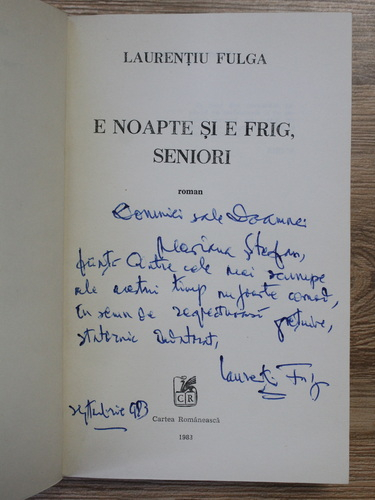 LAURENȚIU FULGA
E NOAPTE ȘI E FRIG,
SENIORI
roman
Domniei sale Doamnei
Mariana Ștefan,
ființă dintre cele mai scumpe
ale acestui timp nu foarte comod,
în semn de respectuoasă prețuire,
statornic îndatorat,
Laurenți Fulga
septembrie 983
CR
Cartea Românească
1983